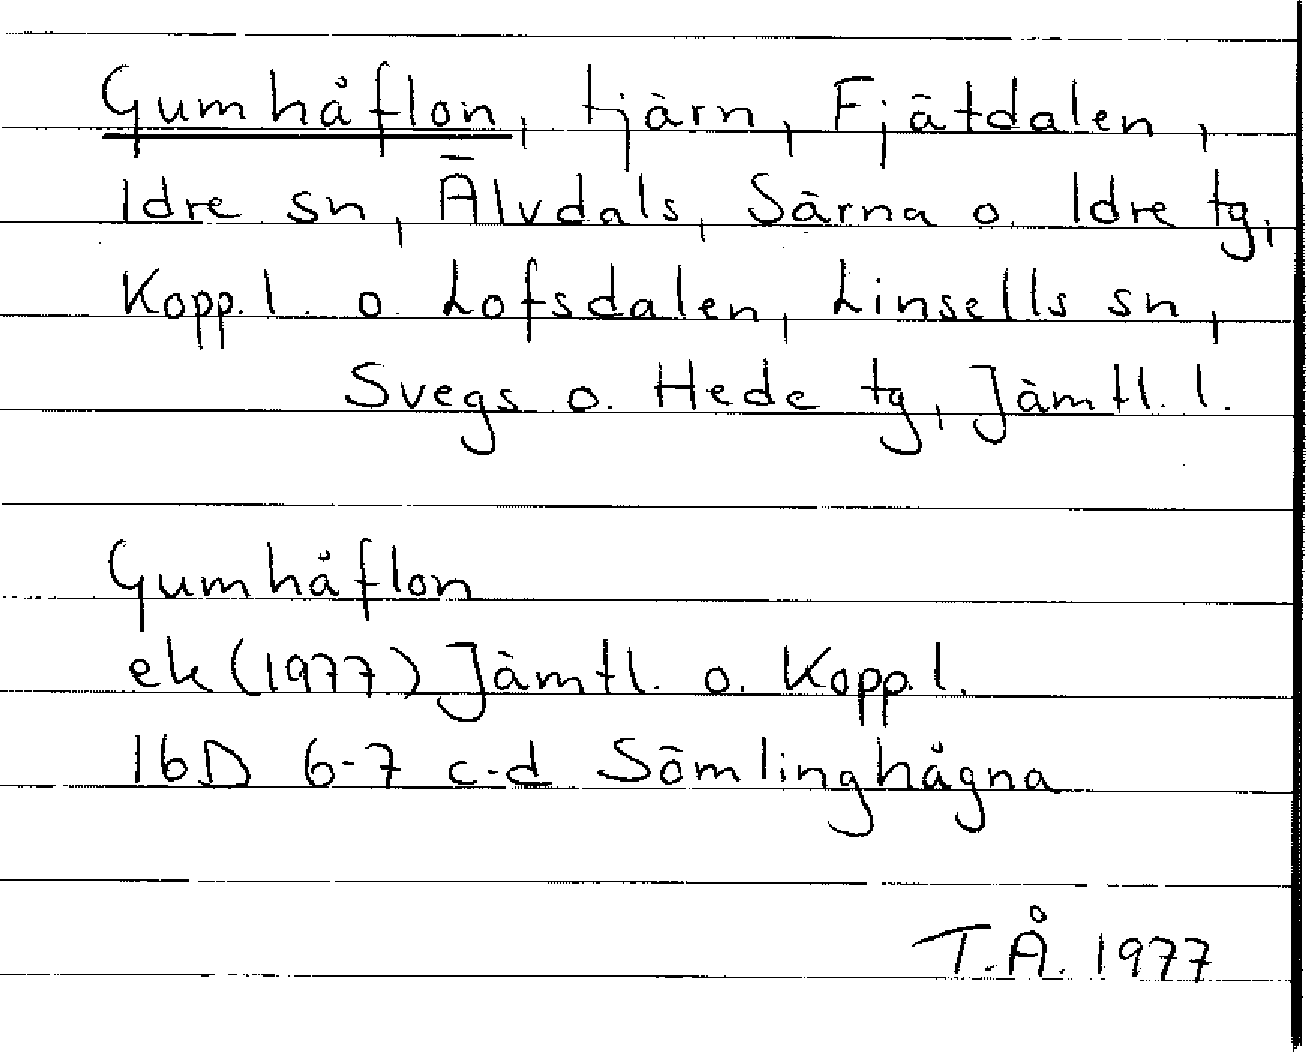 Gumhåflon, tjärn, Fjätdalen,
Idre sn, Älvdals, Särna o. Idre tg,
Kopp. l. o. Lofsdalen, Linsells sn,
Svegs o. Hede tg, Jämtl. l.
Gumhåflon
ek (1977) Jämtl. o. Kopp. l.
16D 6-7 c-d Sömlinghågna
T.Å. 1977